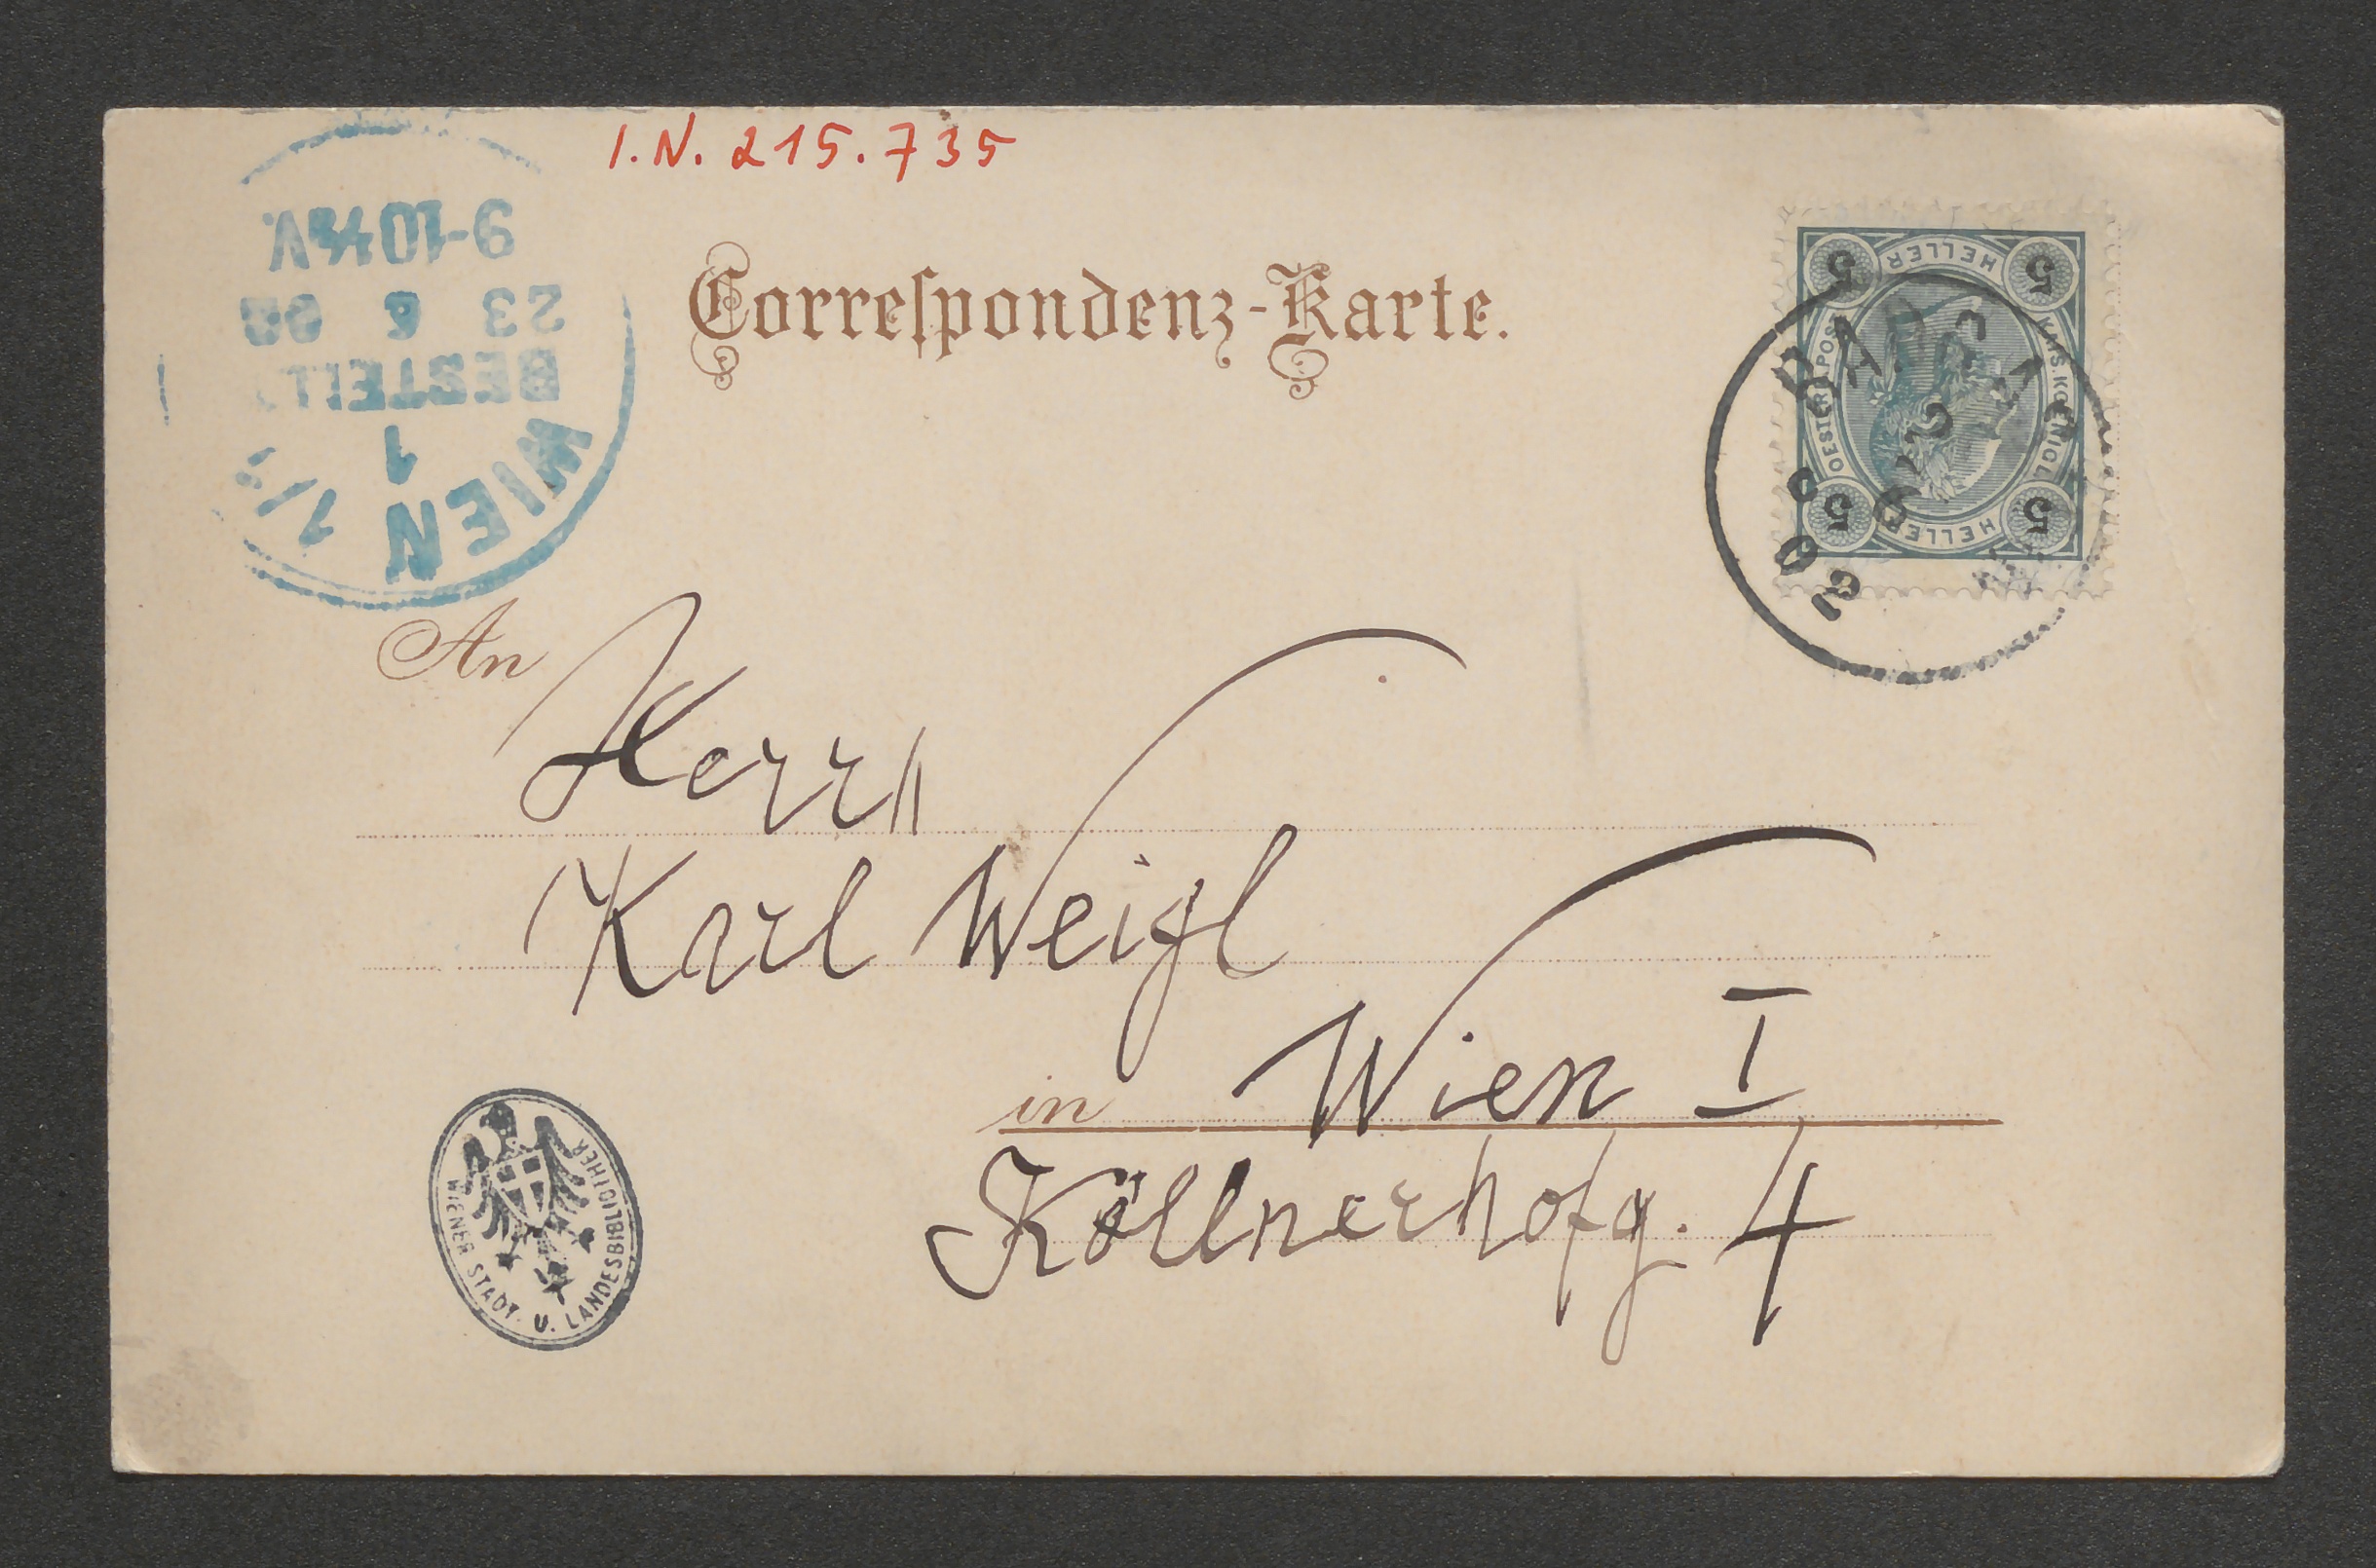 I.N. 215.735
9-10½V.
23 6 00
BESTELLT
1
WIEN 1/1
Correspondenz-Karte.
5 HELLER 5
KAIS. KOENIGL.
OESTERR. POST
5 HELLER 5
An
Herrn
Karl Weigl
in Wien I
Köllnerhofg. 4
WIENER STADT. U. LANDESBIBLIOTHEK